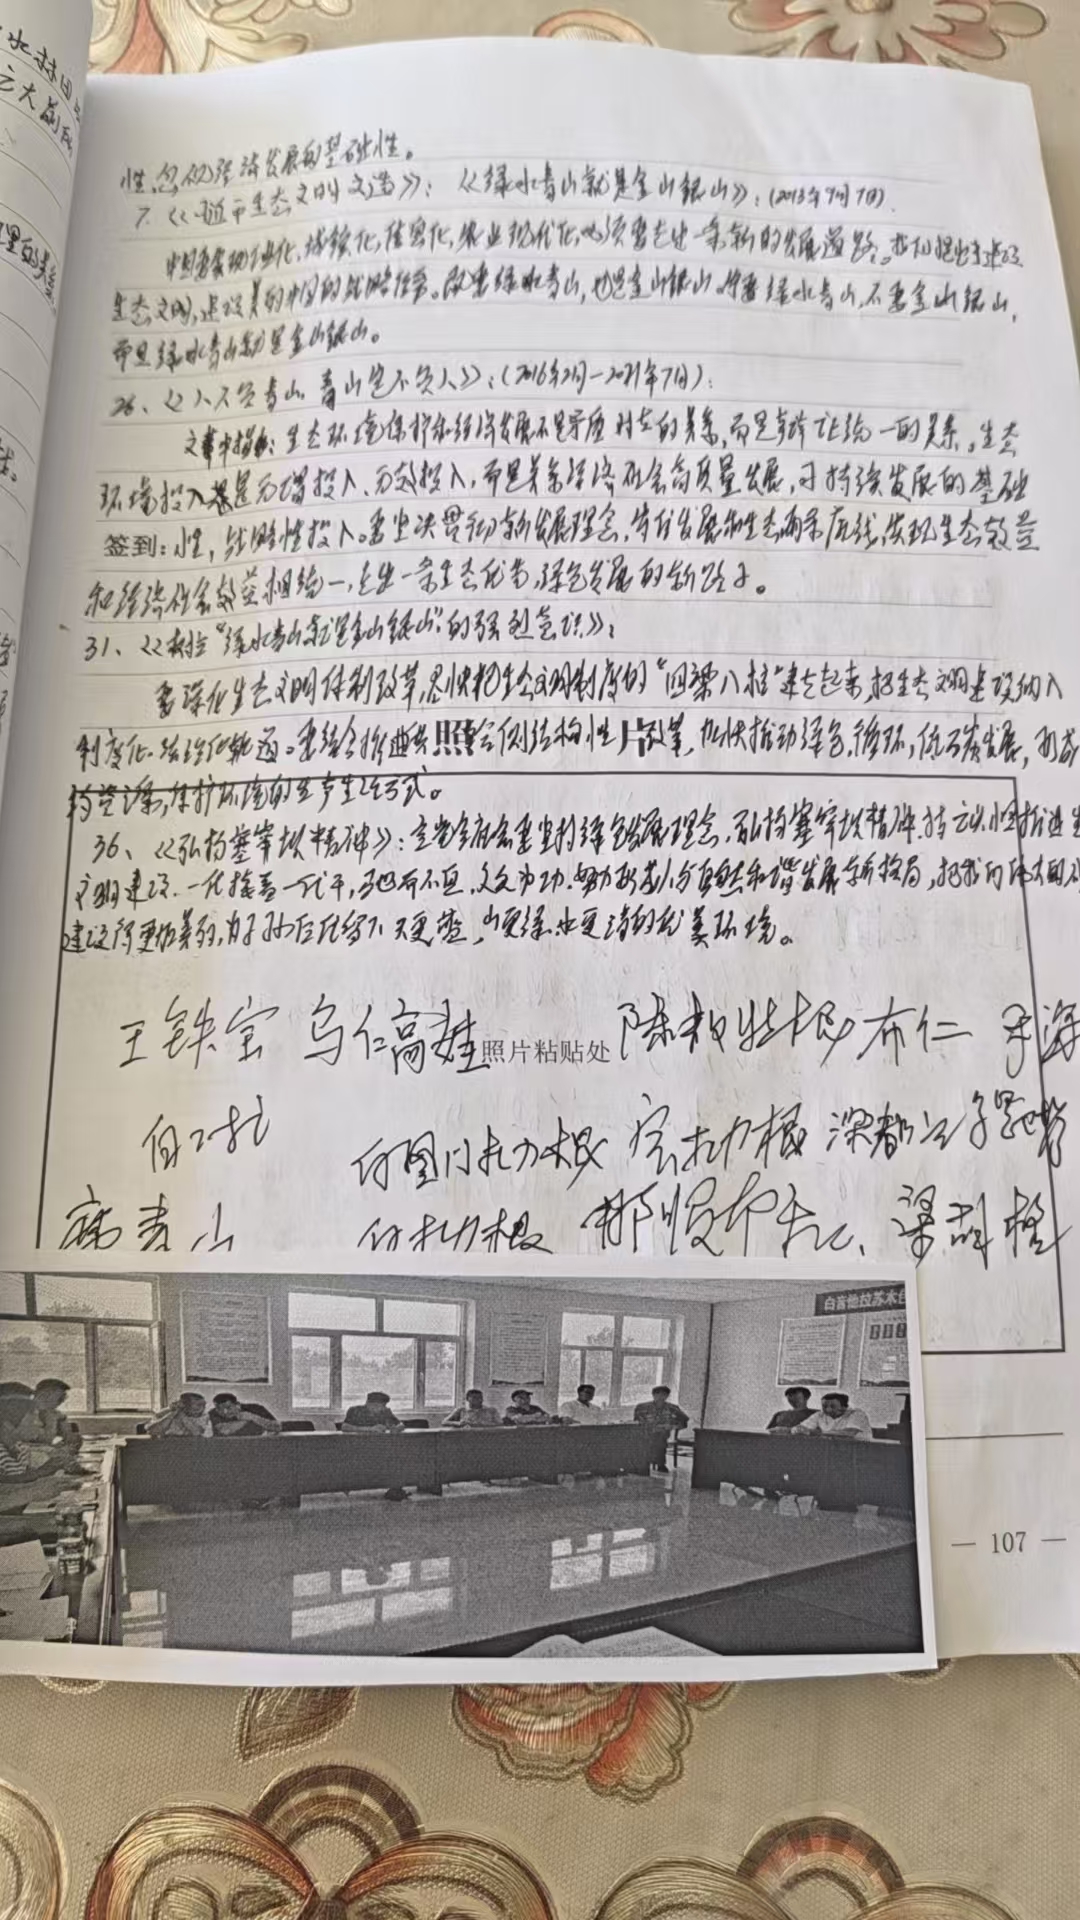 水林田
之大
性,忽视经济发展的基础性。
7.《 生态文明 》:《绿水青山就是金山银山》:(2013年9月7日).
中国要实现工业化、城镇化、信息化、农业现代化,必须要走出一条新的发展道路。我们提出了建设
生态文明,建设美丽中国的战略任务。既要绿水青山,也是金山银山。宁要绿水青山,不要金山银山,
而且绿水青山就是金山银山。
26、《人不负青山,青山定不负人》:(2016年2月—2021年7月):
文章中指出:生态环境保护和经济发展不是矛盾对立的关系,而是辩证统一的关系。生态
环境投入 是无谓投入、无效投入,而是关系经济社会高质量发展,可持续发展的基础
签到:性,战略性投入。要坚决贯彻新发展理念,守住发展和生态两条底线,实现生态效益
和经济社会效益相统一,走出一条生态优先,绿色发展的新路子。
31、《树立“绿水青山就是金山银山”的强烈意识》:
要深化生态文明体制改革,尽快把生态文明制度的“四梁八柱”建立起来,把生态文明建设纳入
制度化、法治化轨道。要结合推 照 侧结构性片改革,加快推动绿色,循环,低碳发展,形成
约资源,保护环境的生产生活方式。
36、《弘扬塞罕坝精神》:全党全社会要坚持绿色发展理念,弘扬塞罕坝精神,持之以恒推进生
文明建设,一代接着一代干,驰而不息,久久为功,努力形成人与自然和谐发展新格局,把我们伟大祖国
建设得更加美丽,为子孙后代留下天更蓝,山更绿,水更清的优美环境。
王铁宝 乌仁高娃 照片粘贴处 陈 布仁 海
白
图门扎力根 宏扎力根
青山 扎力根 那顺 梁
白音他拉苏木
— 107 —